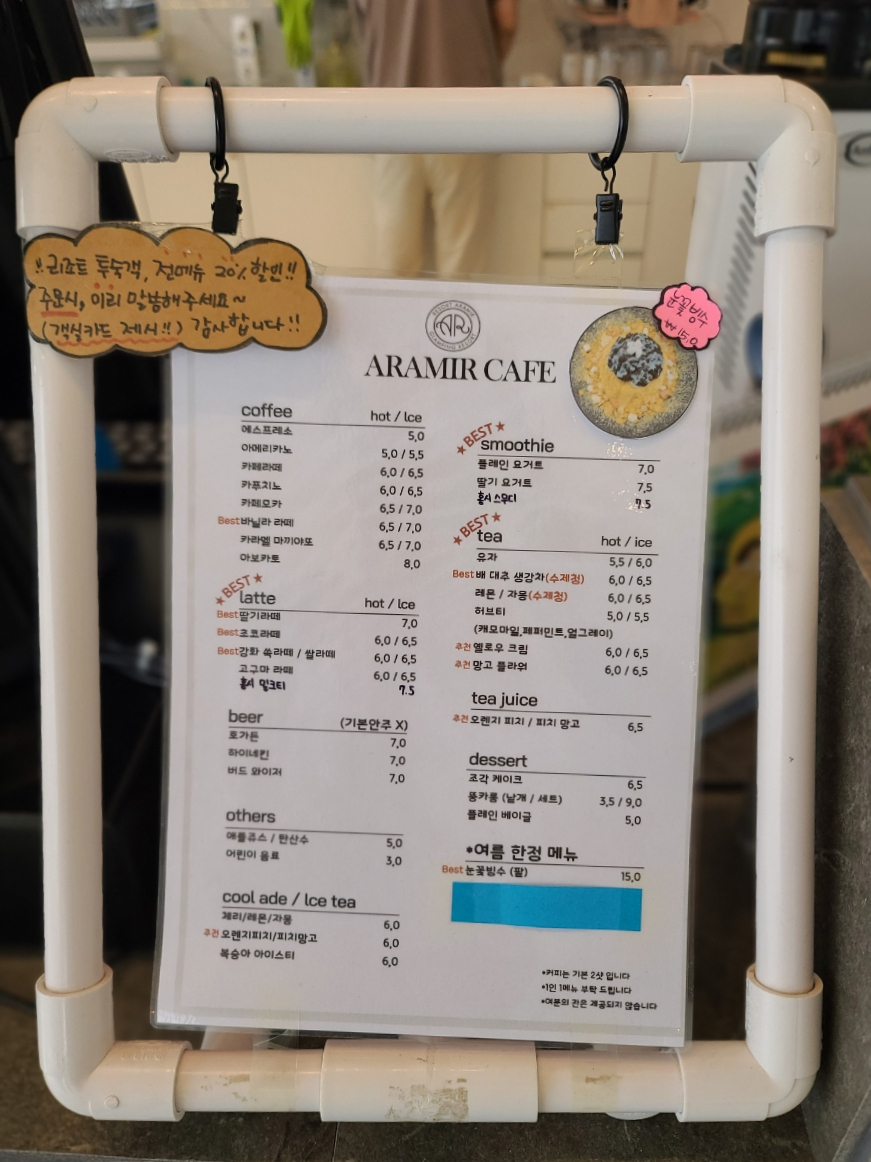 !! 리조트 투숙객, 전메뉴 20% 할인!!
주문시, 미리 말씀해주세요~
(객실카드 제시!!) 감사합니다!!
눈꽃빙수
AR
ARAMIR CAFE
coffee hot / Ice
에스프레소 5,0
아메리카노 5,0 / 5,5
카페라떼 6,0 / 6,5
카푸치노 6,0 / 6,5
카페모카 6,5 / 7,0
Best 바닐라 라떼 6,5 / 7,0
카라멜 마끼야또 6,5 / 7,0
아보카토 8,0
BEST
latte hot / Ice
Best 딸기라떼 7,0
Best 초코라떼 6,0 / 6,5
Best 강화 쑥라떼 / 쌀라떼 6,0 / 6,5
고구마 라떼 6,0 / 6,5
홍시 밀크티 7.5
beer (기본안주 X)
호가든 7,0
하이네킨 7,0
버드 와이저 7,0
others
애플쥬스 / 탄산수 5,0
어린이 음료 3,0
cool ade / Ice tea
체리/레몬/자몽 6,0
추천 오렌지피치/피치망고 6,0
복숭아 아이스티 6,0
BEST
smoothie
플레인 요거트 7,0
딸기 요거트 7,5
홍시 스무디 7.5
BEST
tea hot / ice
유자 5,5 / 6,0
Best 배 대추 생강차(수제청) 6,0 / 6,5
레몬 / 자몽(수제청) 6,0 / 6,5
허브티 5,0 / 5,5
(캐모마일,페퍼민트,얼그레이)
추천 옐로우 크림 6,0 / 6,5
추천 망고 플라워 6,0 / 6,5
tea juice
추천 오렌지 피치 / 피치 망고 6,5
dessert
조각 케이크 6,5
뚱카롱 (낱개 / 세트) 3,5 / 9,0
플레인 베이글 5,0
*여름 한정 메뉴
Best 눈꽃빙수 (팥) 15,0
*커피는 기본 2샷 입니다
*1인 1메뉴 부탁 드립니다
*여분의 잔은 제공되지 않습니다